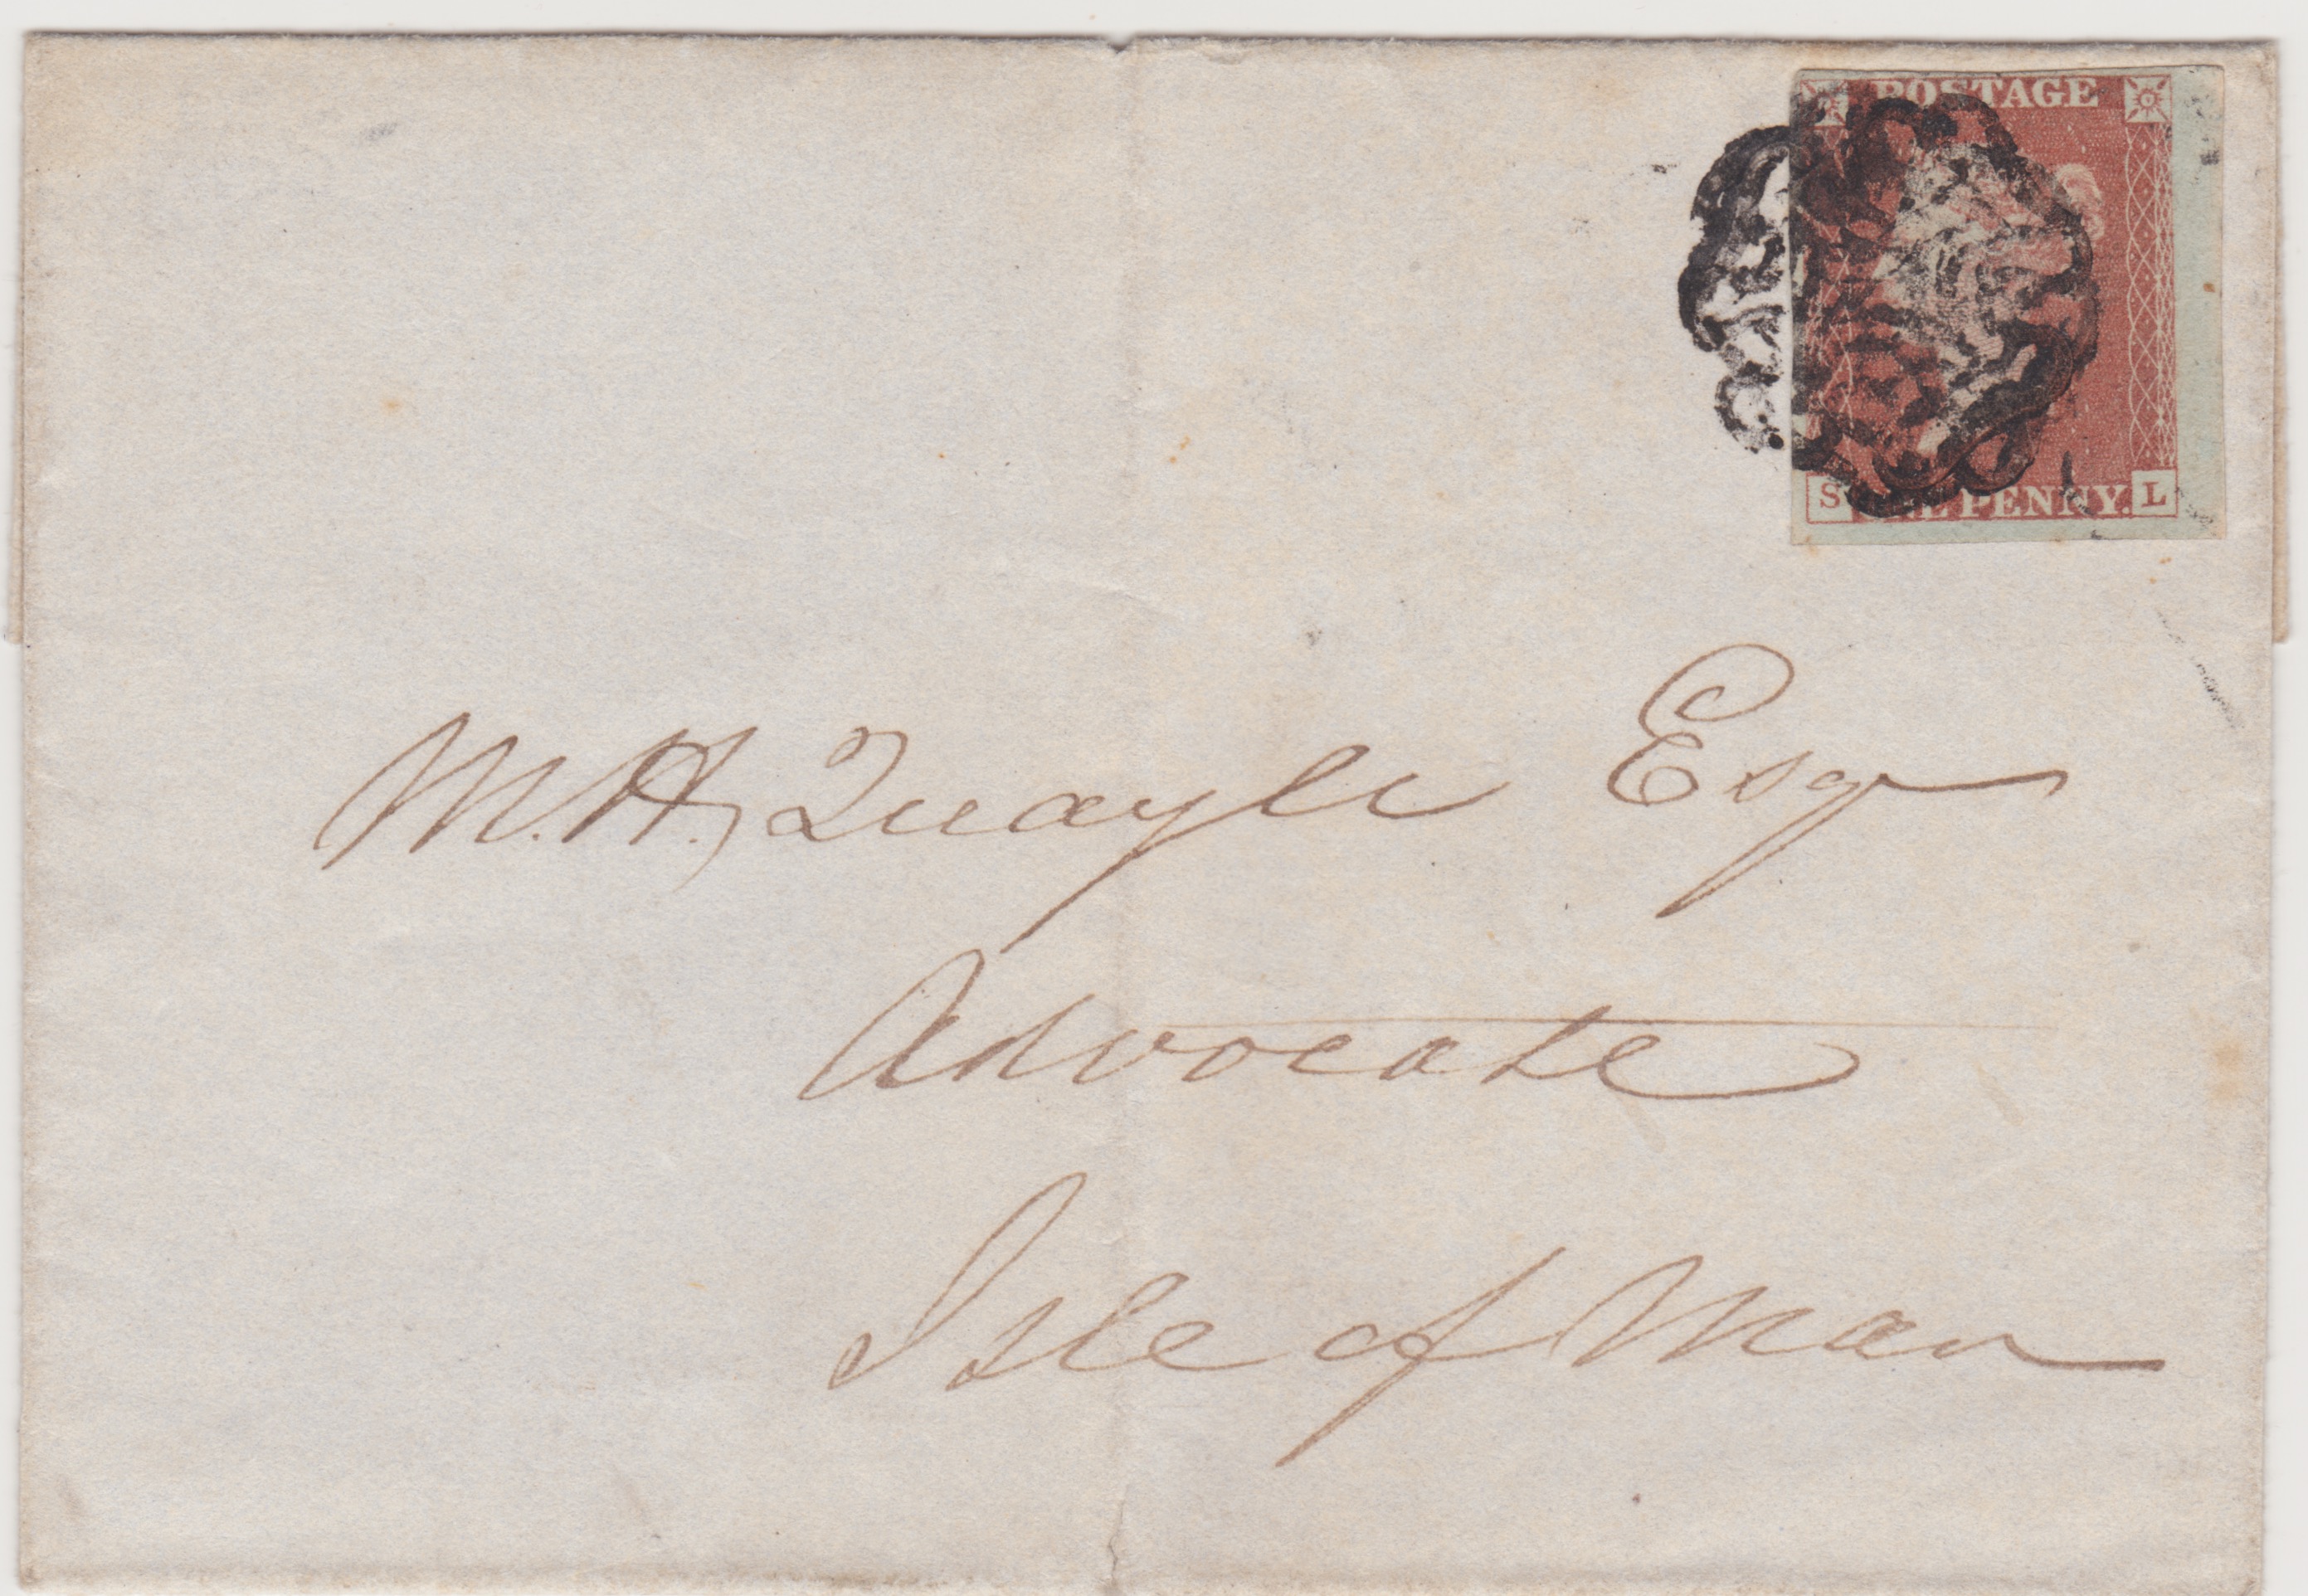 POSTAGE
S PENNY. L
M. H. Quayle Esqr
Advocate
Isle of Man